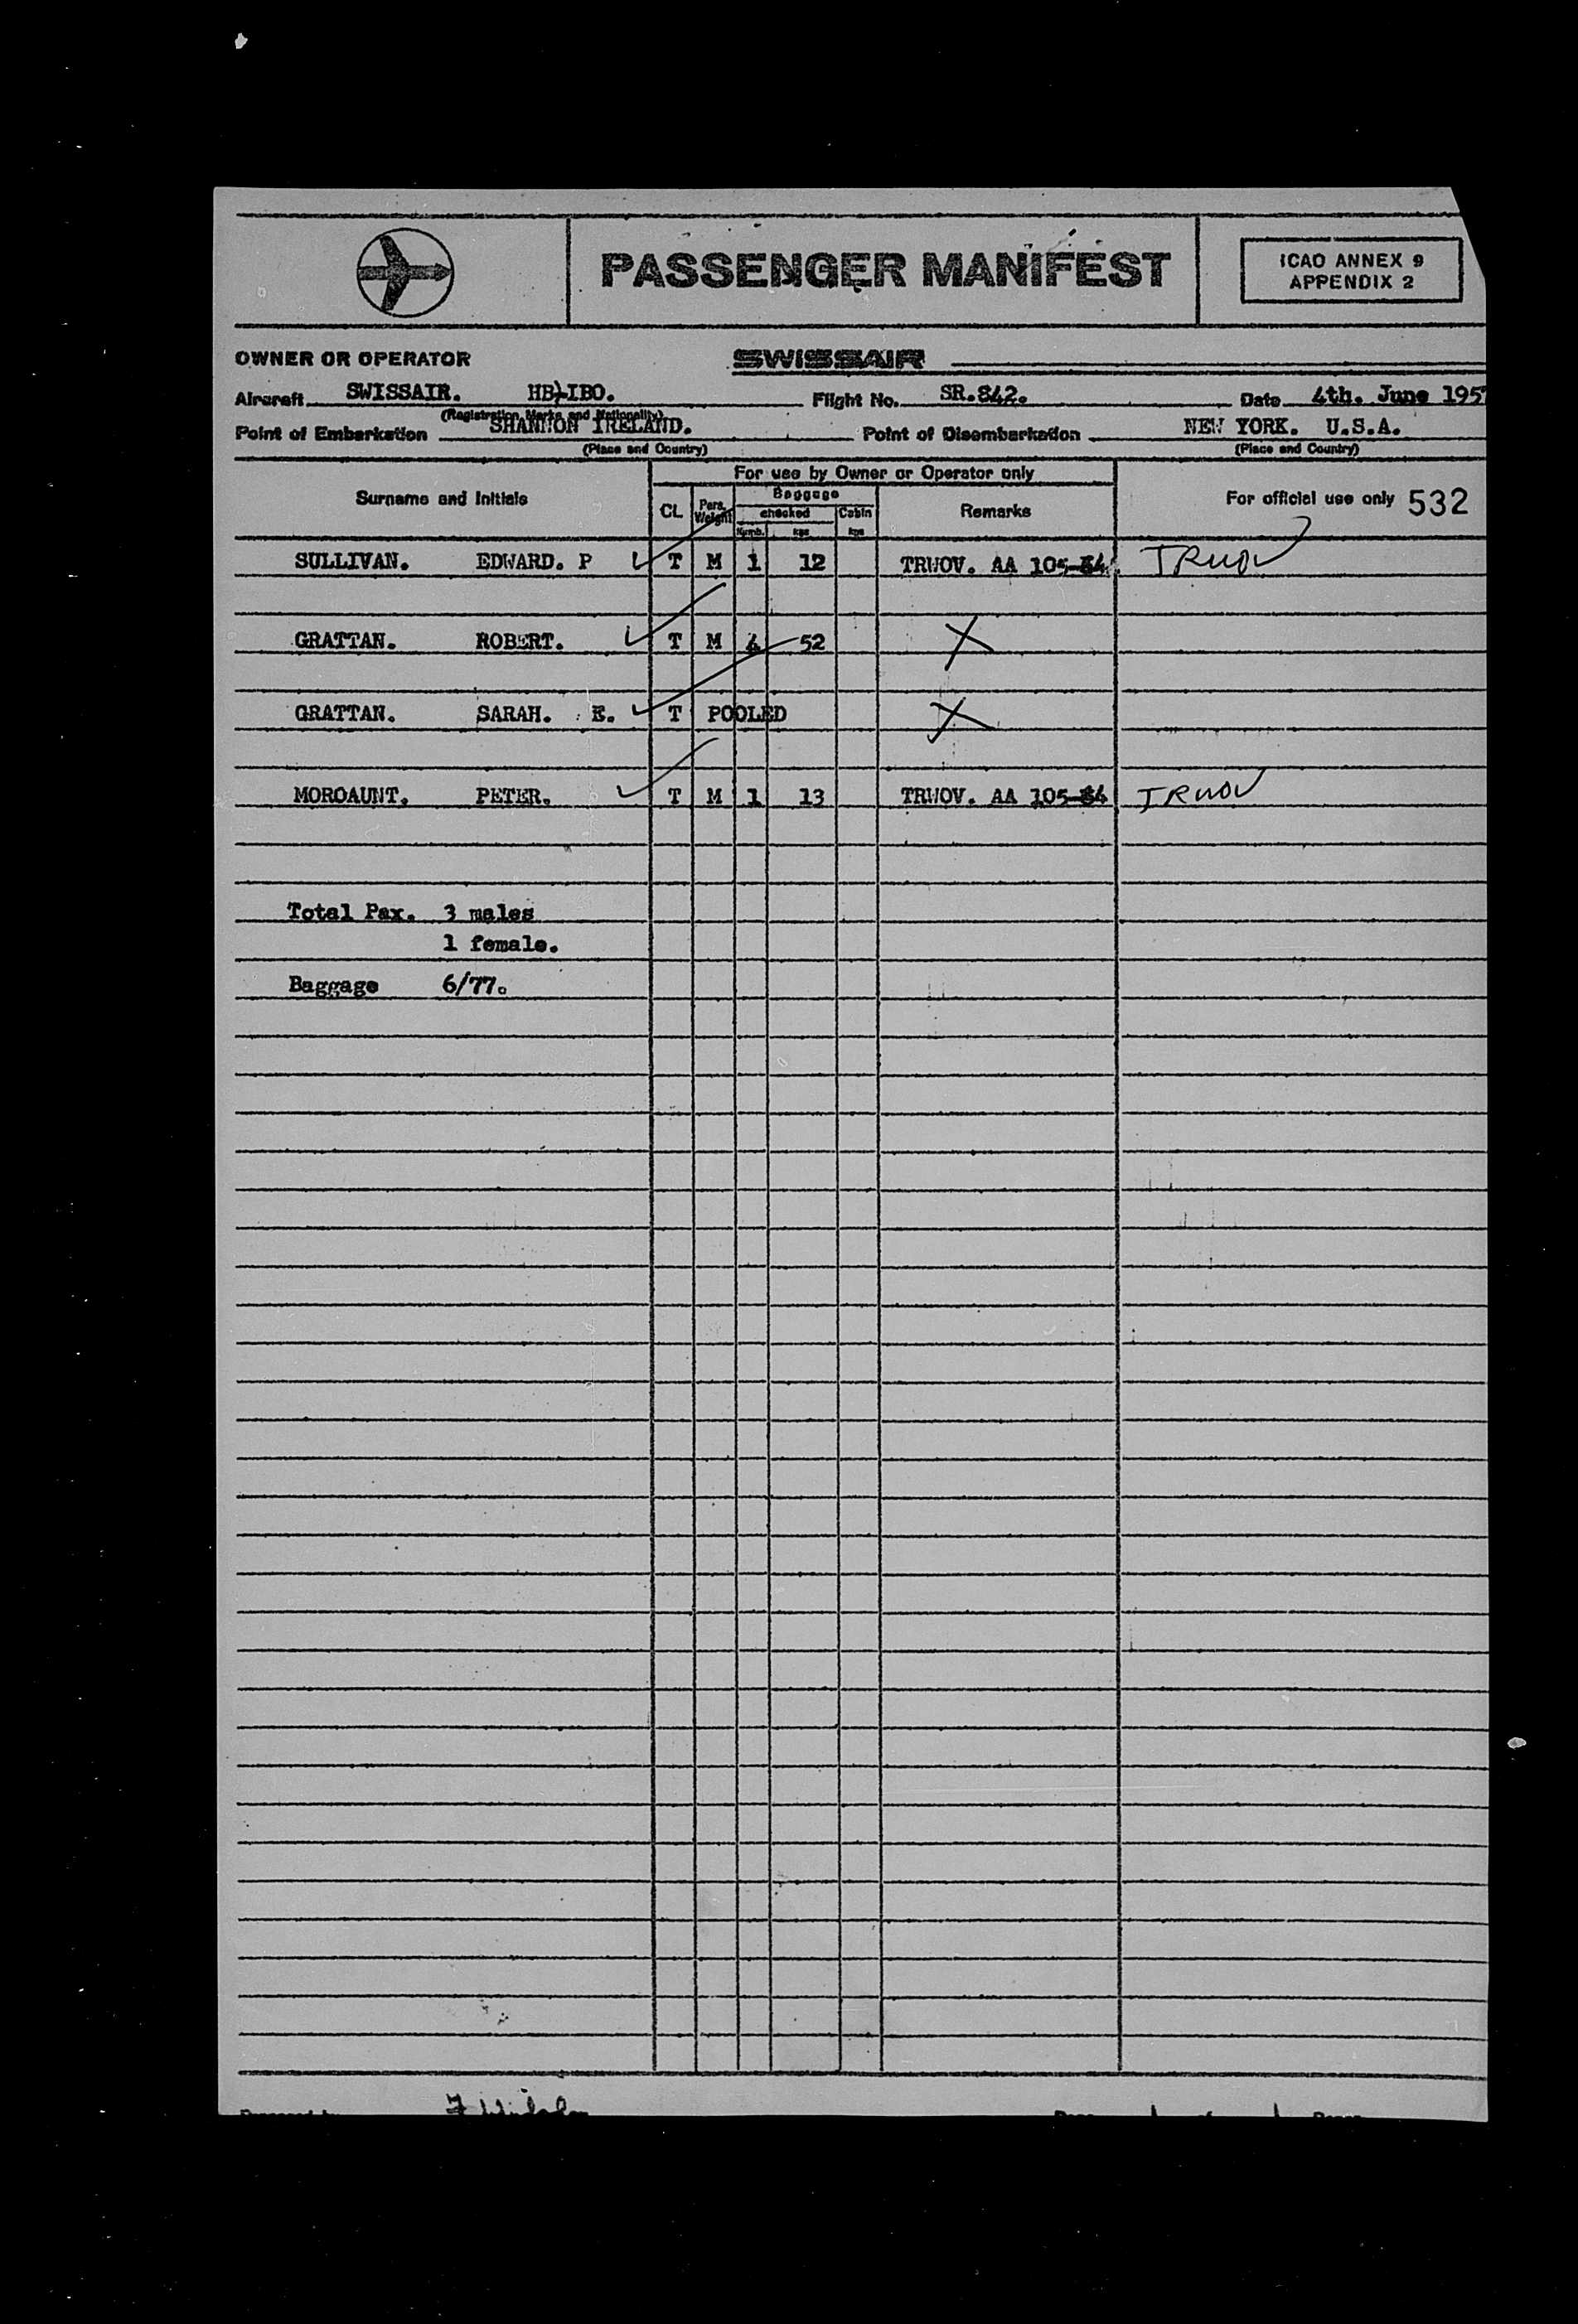 PASSENGER MANIFEST
ICAO ANNEX 9
APPENDIX 2
OWNER OR OPERATOR SWISSAIR
Aircraft SWISSAIR. HB-IBO. Flight No. SR.842. Date 4th. June 195
(Registration Marks and Nationality)
Point of Embarkation SHANNON IRELAND. Point of Disembarkation NEW YORK. U.S.A.
(Place and Country) (Place and Country)
For use by Owner or Operator only
Surname and Initials CL Pers. Weight Baggage checked Numb. kgs Cabin kgs Remarks For official use only 532
SULLIVAN. EDWARD. P T M 1 12 TRWOV. AA 105-64 TRWOV
GRATTAN. ROBERT. T M 4 52 X
GRATTAN. SARAH. E. T POOLED X
MOROAUNT. PETER. T M 1 13 TRWOV. AA 105-64 TRWOV
Total Pax. 3 males
1 female.
Baggage 6/77.